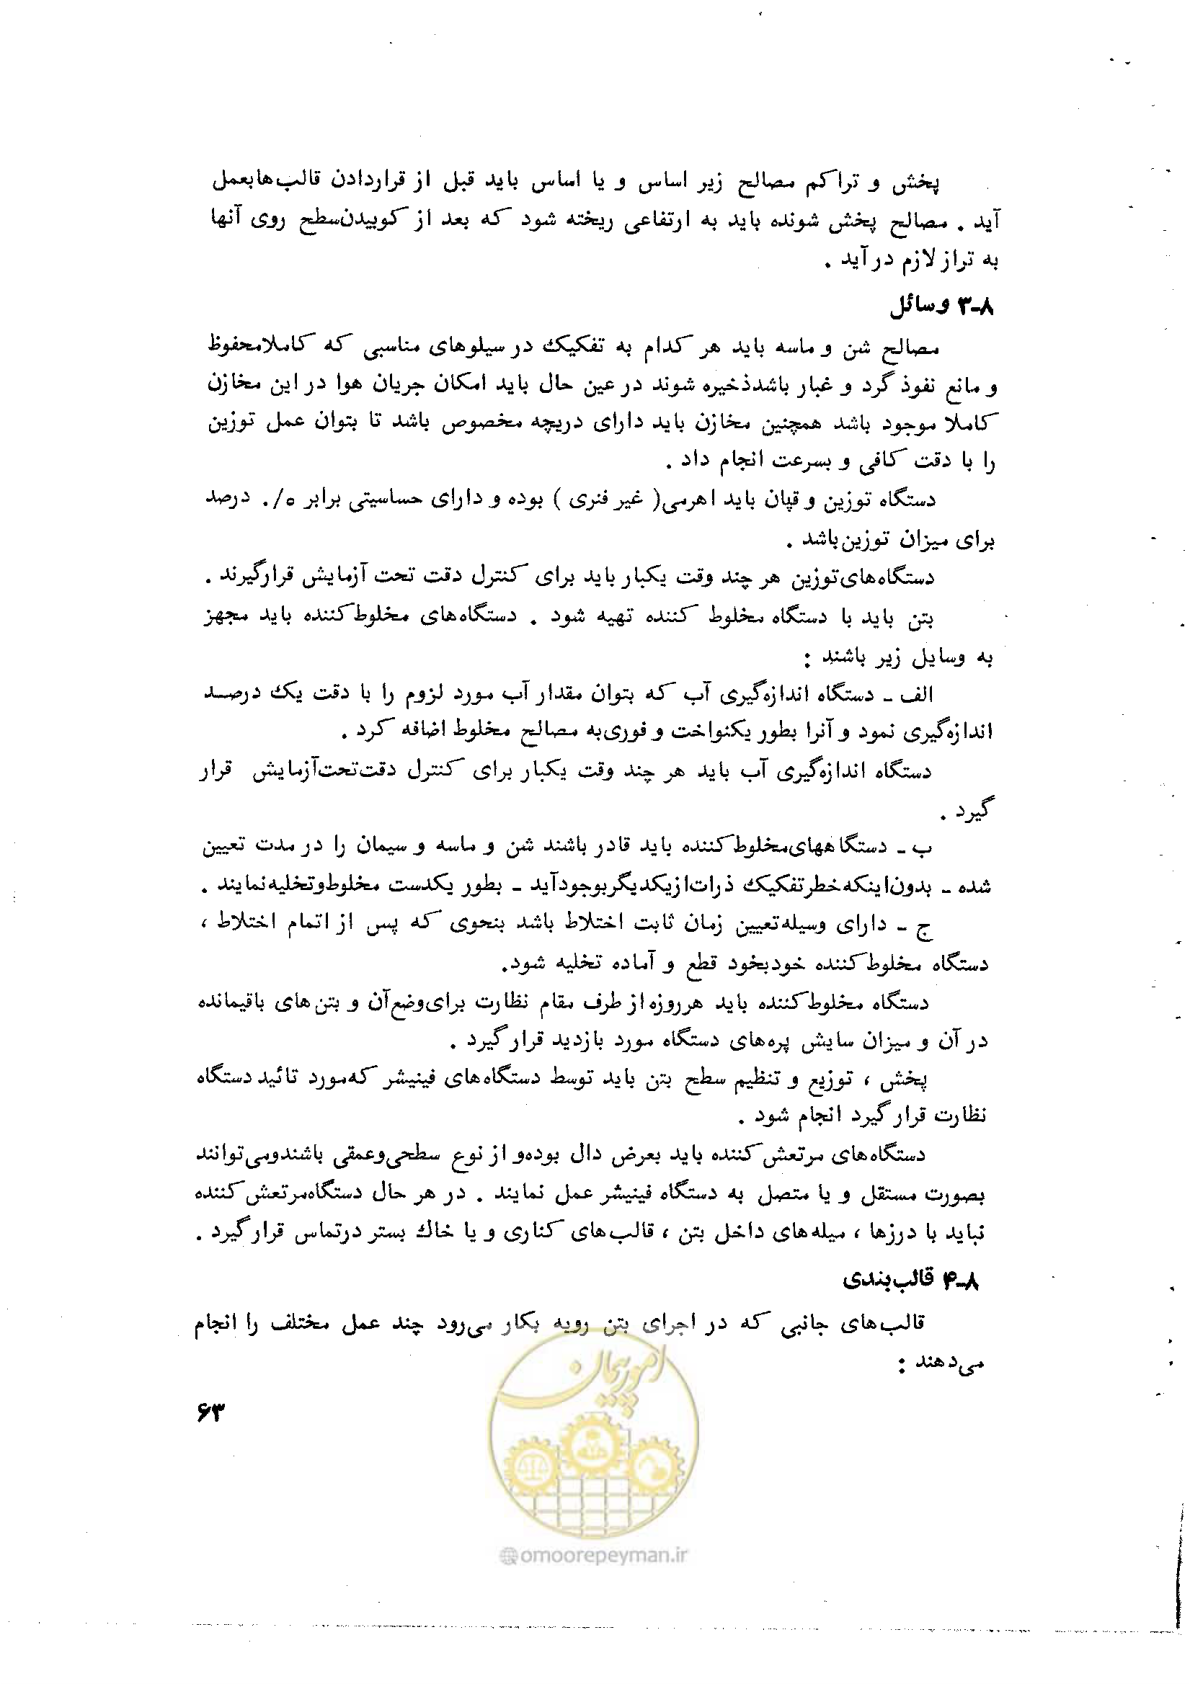 پخش و تراکم مصالح زیر اساس و یا اساس باید قبل از قراردادن قالب‌هابعمل
آید . مصالح پخش شونده باید به ارتفاعی ریخته شود که بعد از کوبیدن‌سطح روی آنها
به تراز لازم درآید .
۸-۳ وسائل
مصالح شن و ماسه باید هر کدام به تفکیک در سیلوهای مناسبی که کاملامحفوظ
و مانع نفوذ گرد و غبار باشدذخیره شوند در عین حال باید امکان جریان هوا در این مخازن
کاملا موجود باشد همچنین مخازن باید دارای دریچه مخصوص باشد تا بتوان عمل توزین
را با دقت کافی و بسرعت انجام داد .
دستگاه توزین و قپان باید اهرمی( غیر فنری ) بوده و دارای حساسیتی برابر ۵/. درصد
برای میزان توزین‌باشد .
دستگاه‌های‌توزین هر چند وقت یکبار باید برای کنترل دقت تحت آزمایش قرارگیرند .
بتن باید با دستگاه مخلوط کننده تهیه شود . دستگاه‌های مخلوط‌کننده باید مجهز
به وسایل زیر باشند :
الف - دستگاه اندازه‌گیری آب که بتوان مقدار آب مورد لزوم را با دقت یک درصد
اندازه‌گیری نمود و آنرا بطور یکنواخت و فوری‌به مصالح مخلوط اضافه کرد .
دستگاه اندازه‌گیری آب باید هر چند وقت یکبار برای کنترل دقت‌تحت‌آزمایش قرار
گیرد .
ب - دستگاههای‌مخلوط‌کننده باید قادر باشند شن و ماسه و سیمان را در مدت تعیین
شده - بدون‌اینکه‌خطرتفکیک ذرات‌ازیکدیگربوجودآید - بطور یکدست مخلوط‌وتخلیه‌نمایند .
ج - دارای وسیله‌تعیین زمان ثابت اختلاط باشد بنحوی که پس از اتمام اختلاط ،
دستگاه مخلوط‌کننده خودبخود قطع و آماده تخلیه شود.
دستگاه مخلوط‌کننده باید هرروزه از طرف مقام نظارت برای‌وضع‌آن و بتن‌های باقیمانده
در آن و میزان سایش پره‌های دستگاه مورد بازدید قرارگیرد .
پخش ، توزیع و تنظیم سطح بتن باید توسط دستگاه‌های فینیشر که‌مورد تائید دستگاه
نظارت قرارگیرد انجام شود .
دستگاه‌های مرتعش‌کننده باید بعرض دال بوده‌و از نوع سطحی‌وعمقی باشندومی‌توانند
بصورت مستقل و یا متصل به دستگاه فینیشر عمل نمایند . در هر حال دستگاه‌مرتعش‌کننده
نباید با درزها ، میله‌های داخل بتن ، قالب‌های کناری و یا خاک بستر درتماس قرارگیرد .
۸-۴ قالب‌بندی
قالب‌های جانبی که در اجرای بتن رویه بکار می‌رود چند عمل مختلف را انجام
می‌دهند :
۶۳
امور پیمان
@omoorepeyman.ir